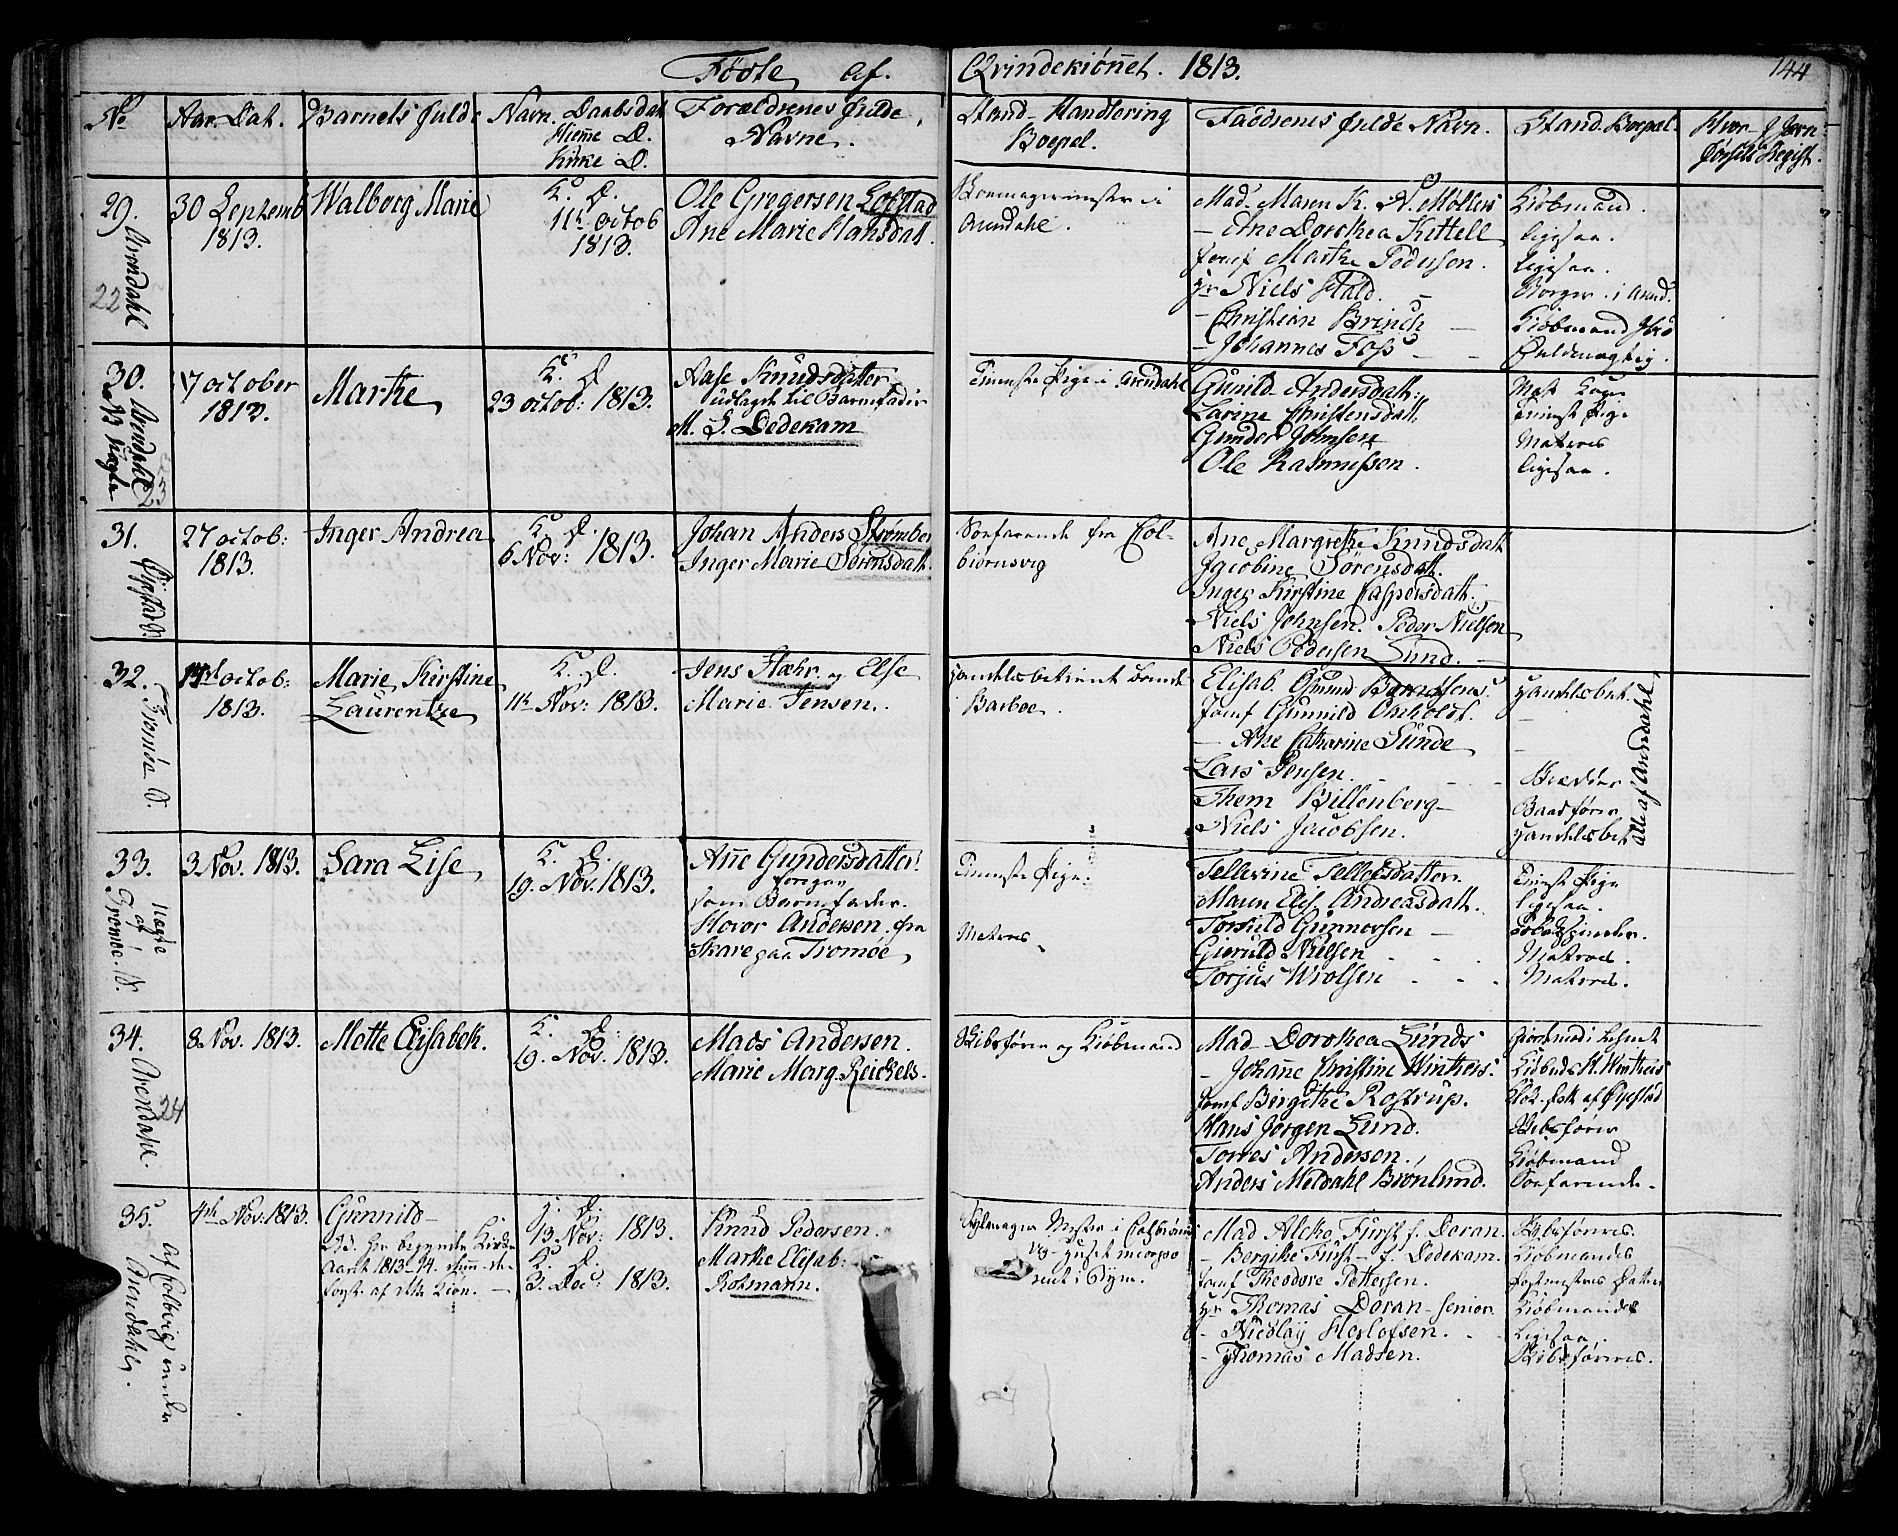 Fødte af. Qvindekiönnet. 1813.
144
No
Aar. Dat.
Barnets fulde Navn.
Daabsdat
Hieme D.
Kirke D.
Forældrenes fulde
Navne.
Stand - Handtering
Boepel.
Faddrenes fulde Navn.
Stand. Boepæl.
Hvor J Jevn
førselsRegist.
29. Arendahl
22
30 Septemb
1813.
Walborg Marie
K. D.
11te octob
1813.
Ole Gregersen Lofstad
Ane Marie Hansdatt.
Skomagermester i
Arendahl.
Mad. Maren K. N. Møllers
- Ane Dorothea Kittell
Jomf Marthe Pedersen.
Hr Niels Hald.
- Christian Brinch
- Johannes Foss
Kiöbmand.
ligesaa.
ligesaa.
Borger i Arend.
Kiöbmand
Fuldmægtig.
30. Arendahl
NB Uægte
23
17 october
1813.
Marthe
K. D.
23 octob: 1813.
Aase Knudsdatter
udlagde til Barnefader
M. S. Dedekam
Tieneste Pige i Arendahl
Gunild Andersdatt.
Larine Christensdatt.
Gunder Johnsen
Ole Rasmussen.
Tieniste Pige
Matros
ligesaa.
31. Øyestad S.
27 octob:
1813.
Inger Andrea
K. D.
6 Nov: 1813.
Johan Anders Strømber
Inger Marie Sørensdatt.
Soefarende fra Col-
biörnsvig
Ane Margrethe Knudsdatt
Jacobine Sörensdatt.
Inger Kirstine Caspersdatt.
Niels Johnsen. Peder Nielsen
Niels Pedersen Lund.
32. Tromöe S.
octob:
1813.
Marie Kirstine
Laurentze
K. D.
11te Nov: 1813.
Jens Flæhr og Else
Marie Jensen.
Handelsbetient
i Barboe.
Elisab. Osmund Berentsens
Jomf Gunnild Omholdt.
- Ane Catharine Sunde
Lars Jensen.
Them Billenberg
Niels Jacobsen.
Handelsbet.
Baadfører
Handelsbet.
alle af Arendahl
33. Uægte
af
Tromöe S.
3 Nov. 1813.
Sara Lise
K. D.
19. Nov. 1813.
Anne Gundersdatter
foregav
som Barnefader.
Hovor Andersen fra
Skare paa Tromöe
Tieneste Pige.
Matros
Tellerine Tellefsdatter.
Maren Elis. Andreasdatt.
Torkild Gunnersen
Gieruld Nielsen
Torjus Wrolsen
Tienest Pige
ligesaa.
Matros.
Matros.
34. Arendahl.
24
8 Nov. 1813.
Mette Elisabeth.
K. D.
19. Nov. 1813.
Mads Andersen.
Marie Marg. Reichels.
Skibsfører og Kiöbmand
Mad - Dorothea Lunds
- Johanne Christine Winthers.
Jomf Birgithe Rostrup.
Hans Jörgen Lund.
Torres Andersen.
Anders Meldahl Brönlund.
Kiöbmds K. Winthers
Klok. Dat. af Øyestad
Skibsfører
Kiöbmand
Soefarende.
35. Af Colbiörnsvig under
Arendahl.
4de Nov: 1813.
Gunnild
NB. her begynder Kirke
Aaret 1813-14. som det
første af dette Kiön.
K. D.
13 Nov. 1813.
K. D.
3. Dec: 1813.
Knud Pedersen.
Marthe Elisab:
Rotmann.
Mester i Colbiörns
vig - huset incorpo
reret i Byen.
Mad Alethe Fürst f. Doran
- Bergithe Fürst - f. Dedekam.
Jomf Theodore Pettersen.
Hr Thomas Doran senior.
- Nicolay Herlofsen.
- Thomas Madsen.
Skibsførers.
Kiöbmandes
Postmesters Datter
Kiöbmandes
Ligesaa.
Skibsførers.